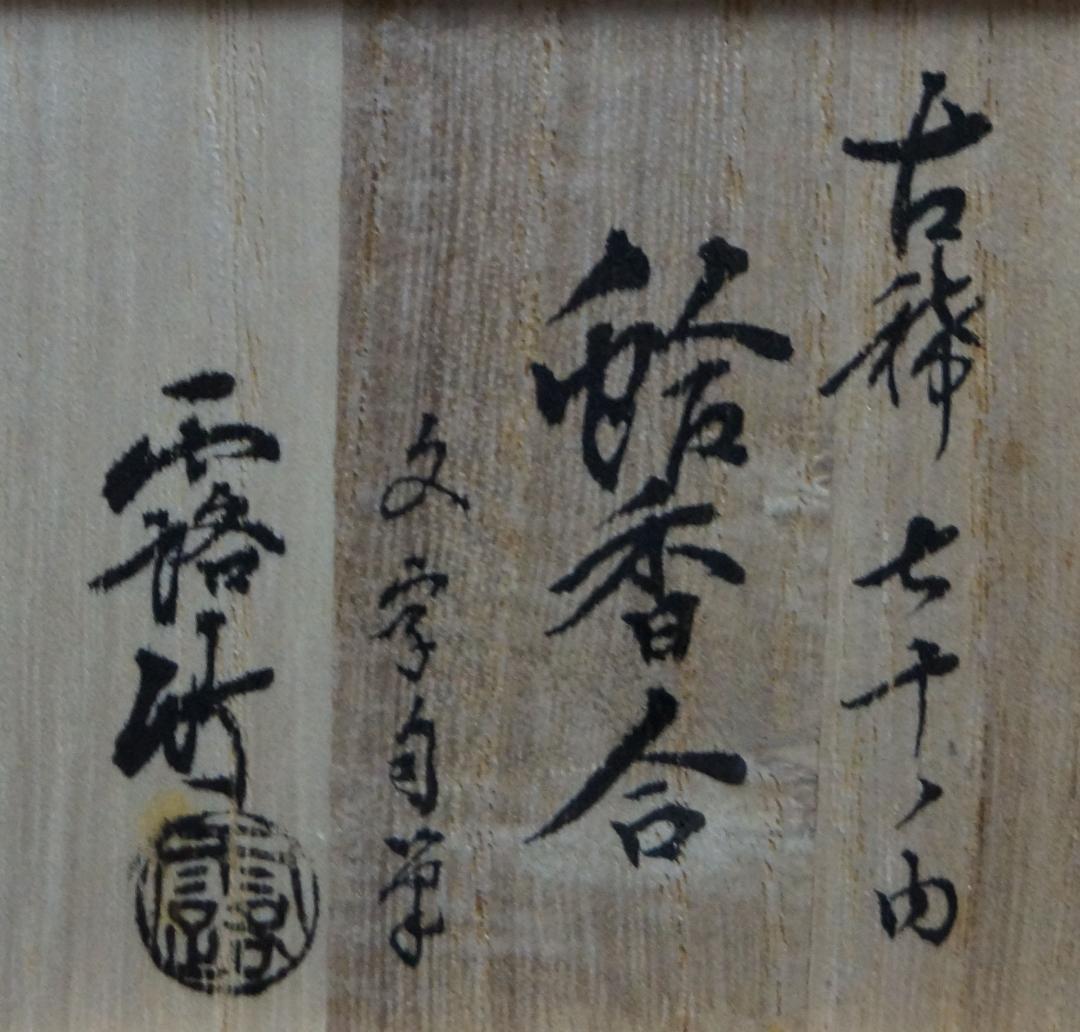 古稀 七十ノ内
蛤香合
文字自筆
露竹